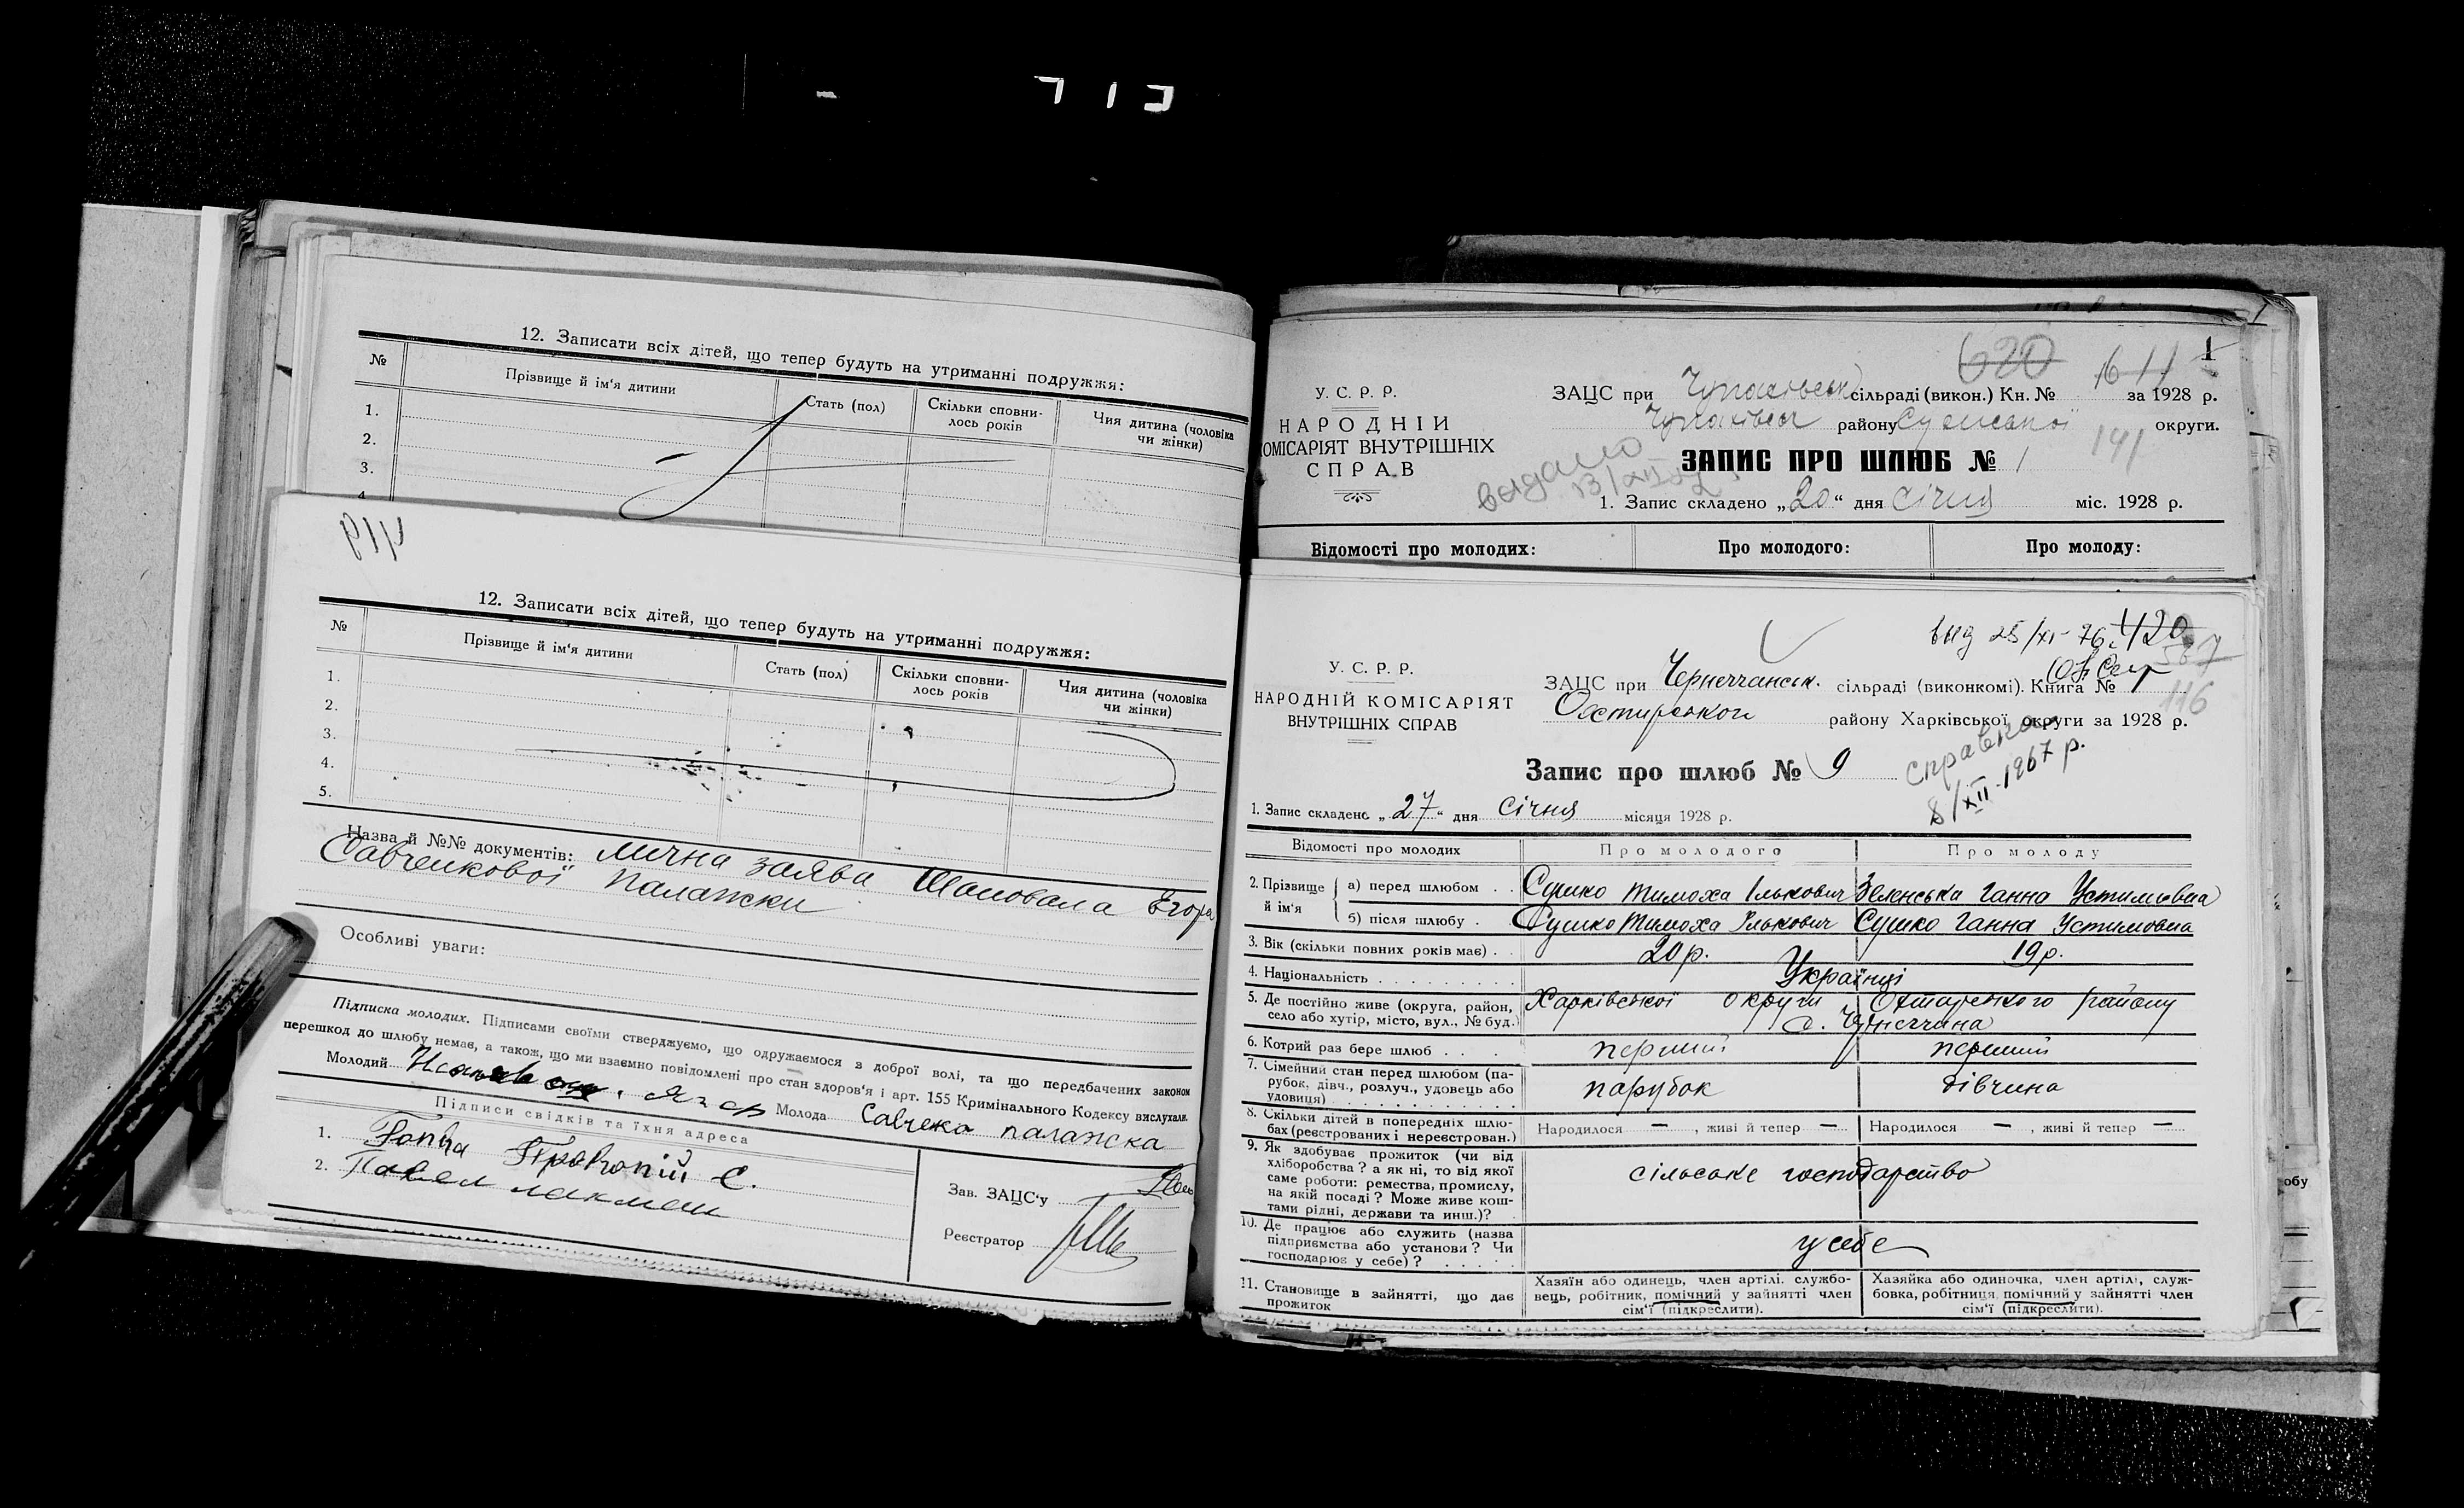 12. Записати всіх дітей, що тепер будуть на утриманні подружжя:
№ Прізвище й ім'я дитини Стать (пол) Скільки сповнилось років Чия дитина (чоловіка чи жінки)
1.
2.
3.
4
12. Записати всіх дітей, що тепер будуть на утриманні подружжя:
№ Прізвище й ім'я дитини Стать (пол) Скільки сповнилось років Чия дитина (чоловіка чи жінки)
1.
2.
3.
4.
5.
Назва й №№ документів: лична заява Шаповала Егора
Савченкової Палажки
Особливі уваги:
Підписка молодих. Підписами своїми стверджуємо, що одружаємося з доброї волі, та що передбачених законом
перешкод до шлюбу немає, а також, що ми взаємно повідомлені про стан здоров'я і арт. 155 Кримінального Кодексу вислухали.
Молодий Молода Савченко палажка
Підписи свідків та їхня адреса
1. Гапка Пракопій С.
2. Павел
Зав. ЗАЦС'у
Реєстратор
У. С. Р. Р.
НАРОДНІЙ
КОМІСАРІЯТ ВНУТРІШНІХ
СПРАВ
620 1611 1
ЗАЦС при Чупахівськ сільраді (викон.) Кн. № за 1928 р.
Чупахівськ району Сумської округи.
141
видано
ЗАПИС ПРО ШЛЮБ № 1
1. Запис складено „20“ дня січня міс. 1928 р.
Відомості про молодих: Про молодого: Про молоду:
выд 25/XI-76 г. 420
587
116
У. С. Р. Р.
НАРОДНІЙ КОМІСАРІЯТ
ВНУТРІШНІХ СПРАВ
ЗАЦС при Чернеччанськ. сільраді (виконкомі). Книга №
Охтирського району Харківської округи за 1928 р.
Запис про шлюб № 9
справка
8/XII-1967 р.
1. Запис складено „27“ дня січня місяця 1928 р.
Відомості про молодих Про молодого Про молоду
2. Прізвище й ім'я а) перед шлюбом . . Сушко Тимоха Ількович Зеленська Ганна Устимовна
б) після шлюбу . Сушко Тимоха Ількович Сушко Ганна Устимовна
3. Вік (скільки повних років має) . . 20 р. 19 р.
4. Національність . . . . . . . . . . Українці
5. Де постійно живе (округа, район, село або хутір, місто, вул., № буд.) Харківської округи, Охтирського району
с. Чернеччина
6. Котрий раз бере шлюб . . . . перший перший
7. Сімейний стан перед шлюбом (парубок, дівч., розлуч., удовець або удовиця) . . . . парубок дівчина
8. Скільки дітей в попередніх шлюбах (реєстрованих і нереєстрован.) Народилося — , живі й тепер — Народилося — , живі й тепер —
9. Як здобуває прожиток (чи від хліборобства? а як ні, то від якої саме роботи: ремества, промислу, на якій посаді? Може живе коштами рідні, держави та инш.)? сільське господарство
10. Де працює або служить (назва підприємства або установи? Чи господарює у себе)? . . . . . у себе
11. Становище в занятті, що дає прожиток Хазяїн або одинець, член артілі, службовець, робітник, помічний у занятті член сім'ї (підкреслити). Хазяйка або одиночка, член артілі, службовка, робітниця, помічний у занятті член сім'ї (підкреслити).
обу